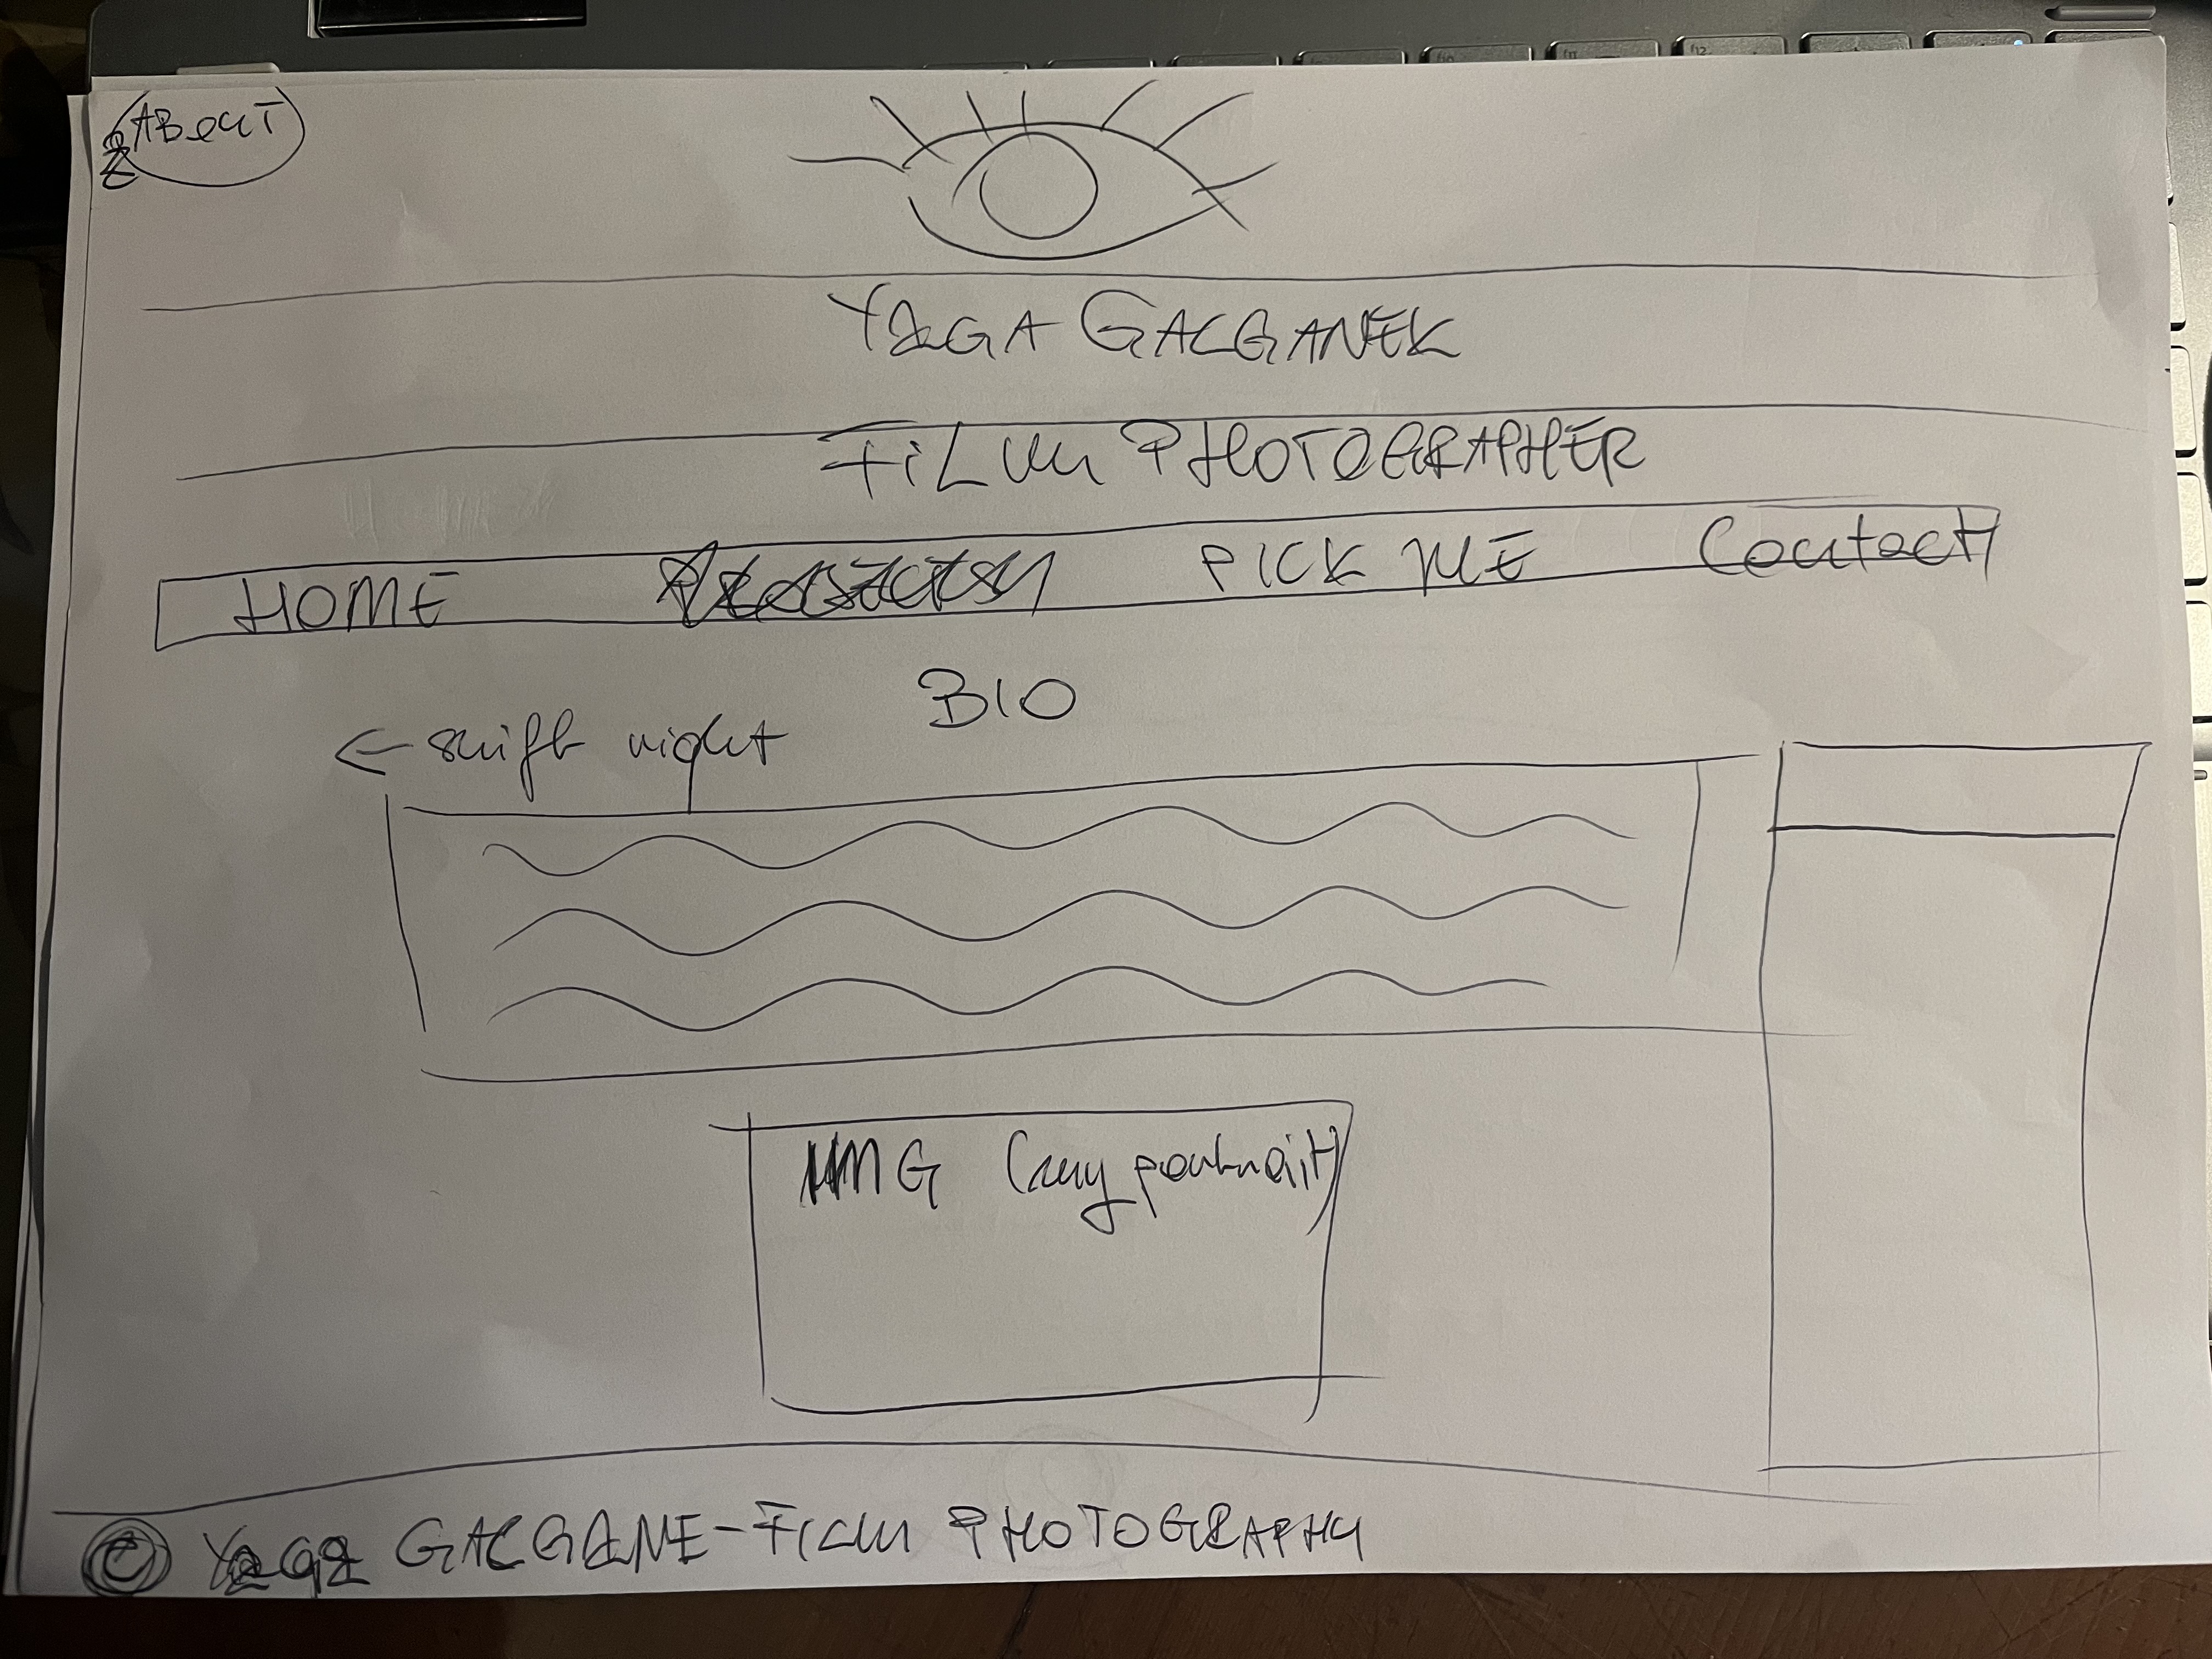 ABOUT
YAGA GALGANEK
FILM PHOTOGRAPHER
HOME PICK ME Contact
BIO
← shift right
IMG (my portrait)
© YAGA GALGANE-FILM PHOTOGRAPHY